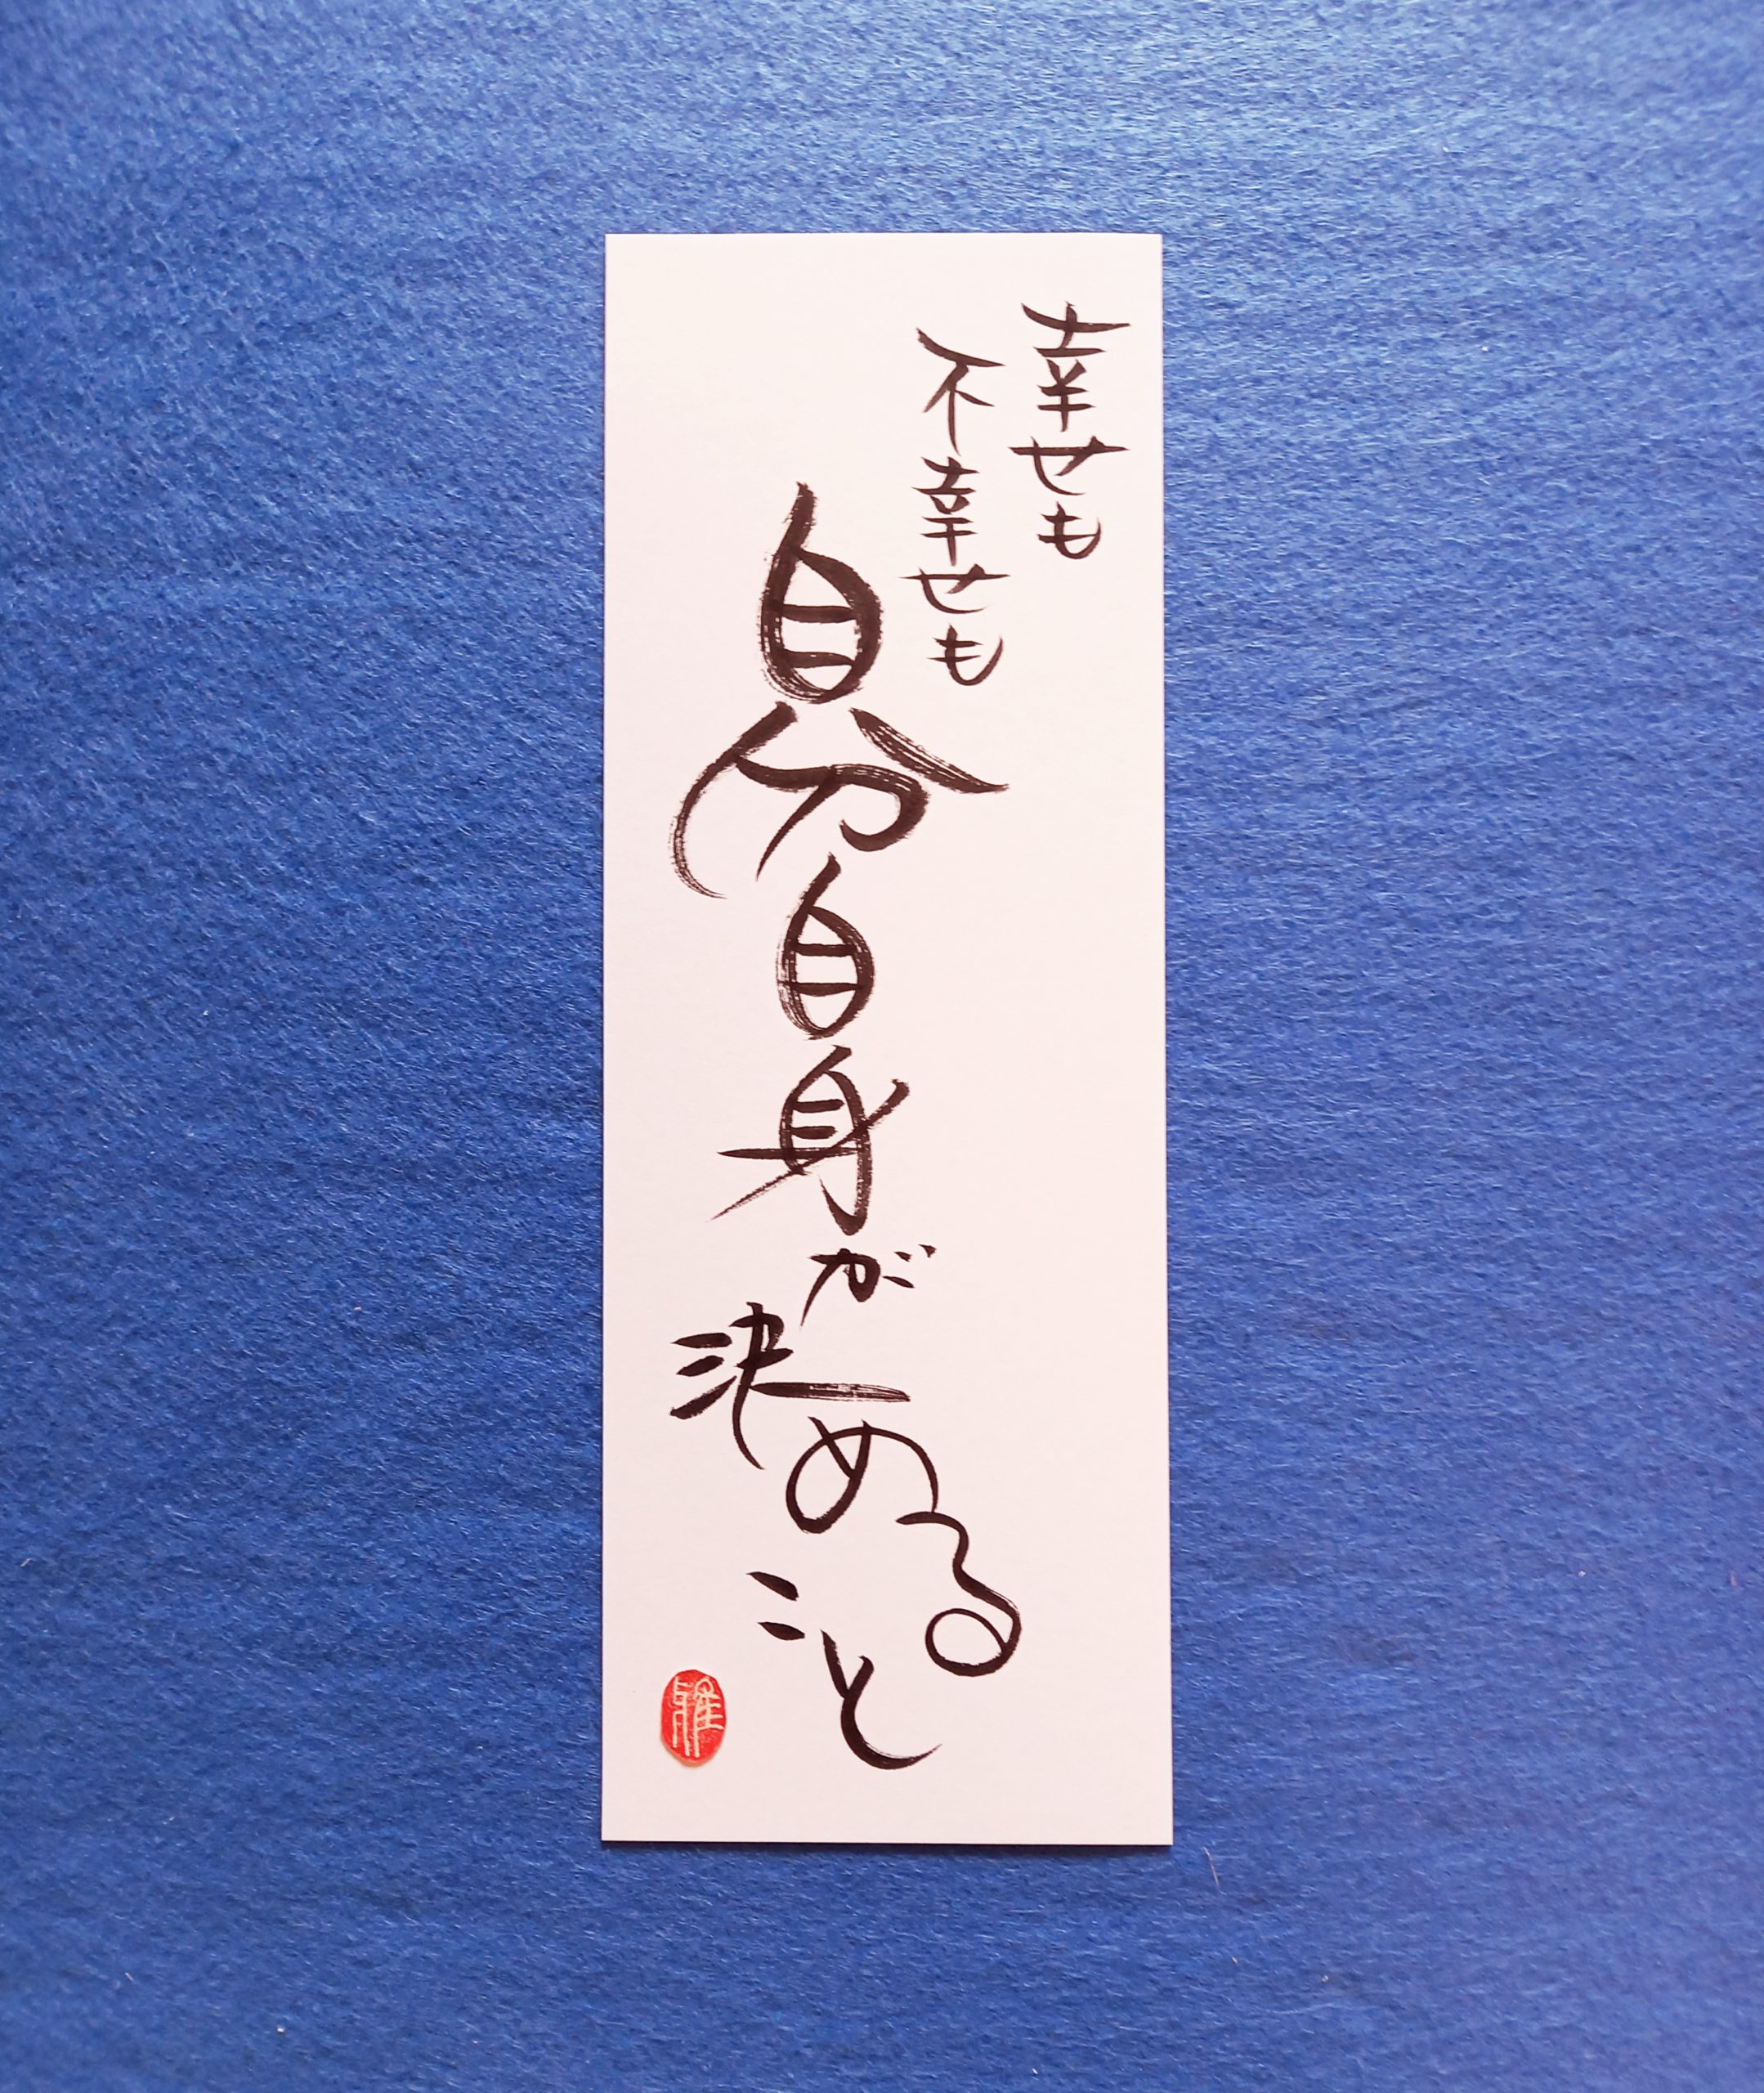 幸せも
不幸せも
自分自身が
決める
こと
雅